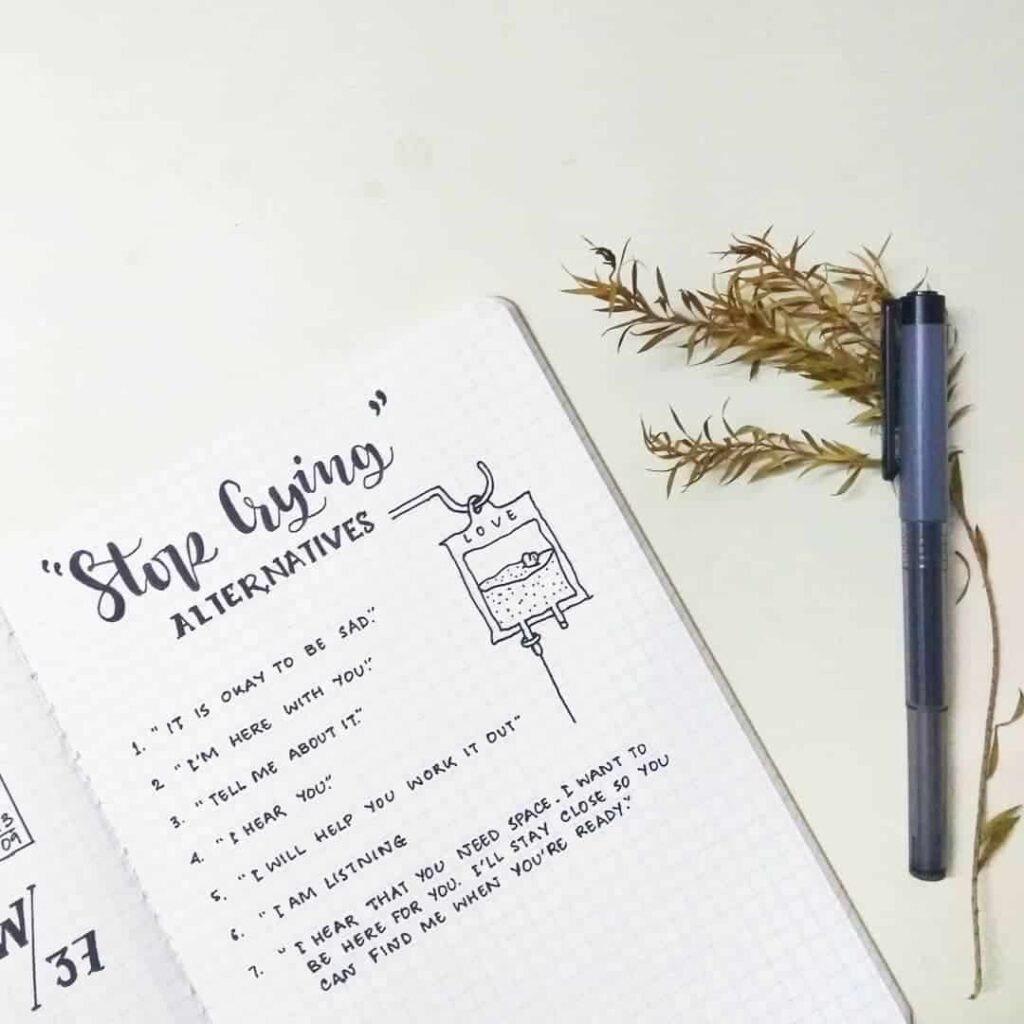 “Stop Crying”
ALTERNATIVES
LOVE
1. “IT IS OKAY TO BE SAD.”
2 “I'M HERE WITH YOU.”
3. “TELL ME ABOUT IT.”
4. “I HEAR YOU.”
5. “I WILL HELP YOU WORK IT OUT”
6. “I AM LISTNING
7. “I HEAR THAT YOU NEED SPACE. I WANT TO
BE HERE FOR YOU. I'LL STAY CLOSE SO YOU
CAN FIND ME WHEN YOU'RE READY.”
3
09
W/37